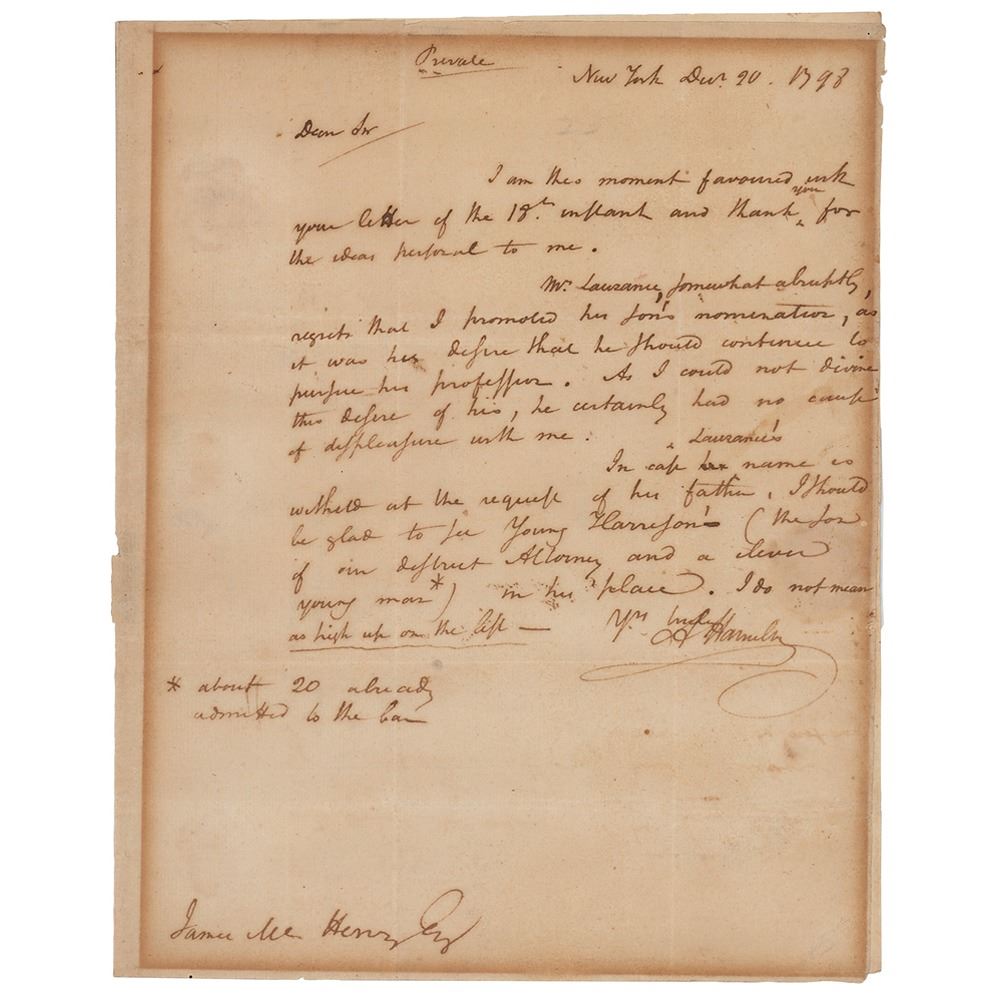 Private
New York Decr. 20. 1798
Dear Sir
I am this moment favoured with
your letter of the 18th. instant and thank you for
the ideas personal to me.
Mr. Laurance, somewhat abruptly,
regrets that I promoted his son's nomination, as
it was his desire that he should continue to
pursue his profession. As I could not divine
this desire of his, he certainly had no cause
of displeasure with me.
Laurance's
In case his name is
witheld at the request of his father, I should
be glad to see Young Harrison's (the son
of our district Attorney and a clever
young man*) in his place. I do not mean
as high up on the list —
Yrs. truly
A Hamilton
* about 20 already
admitted to the bar
James Mc Henry Esq